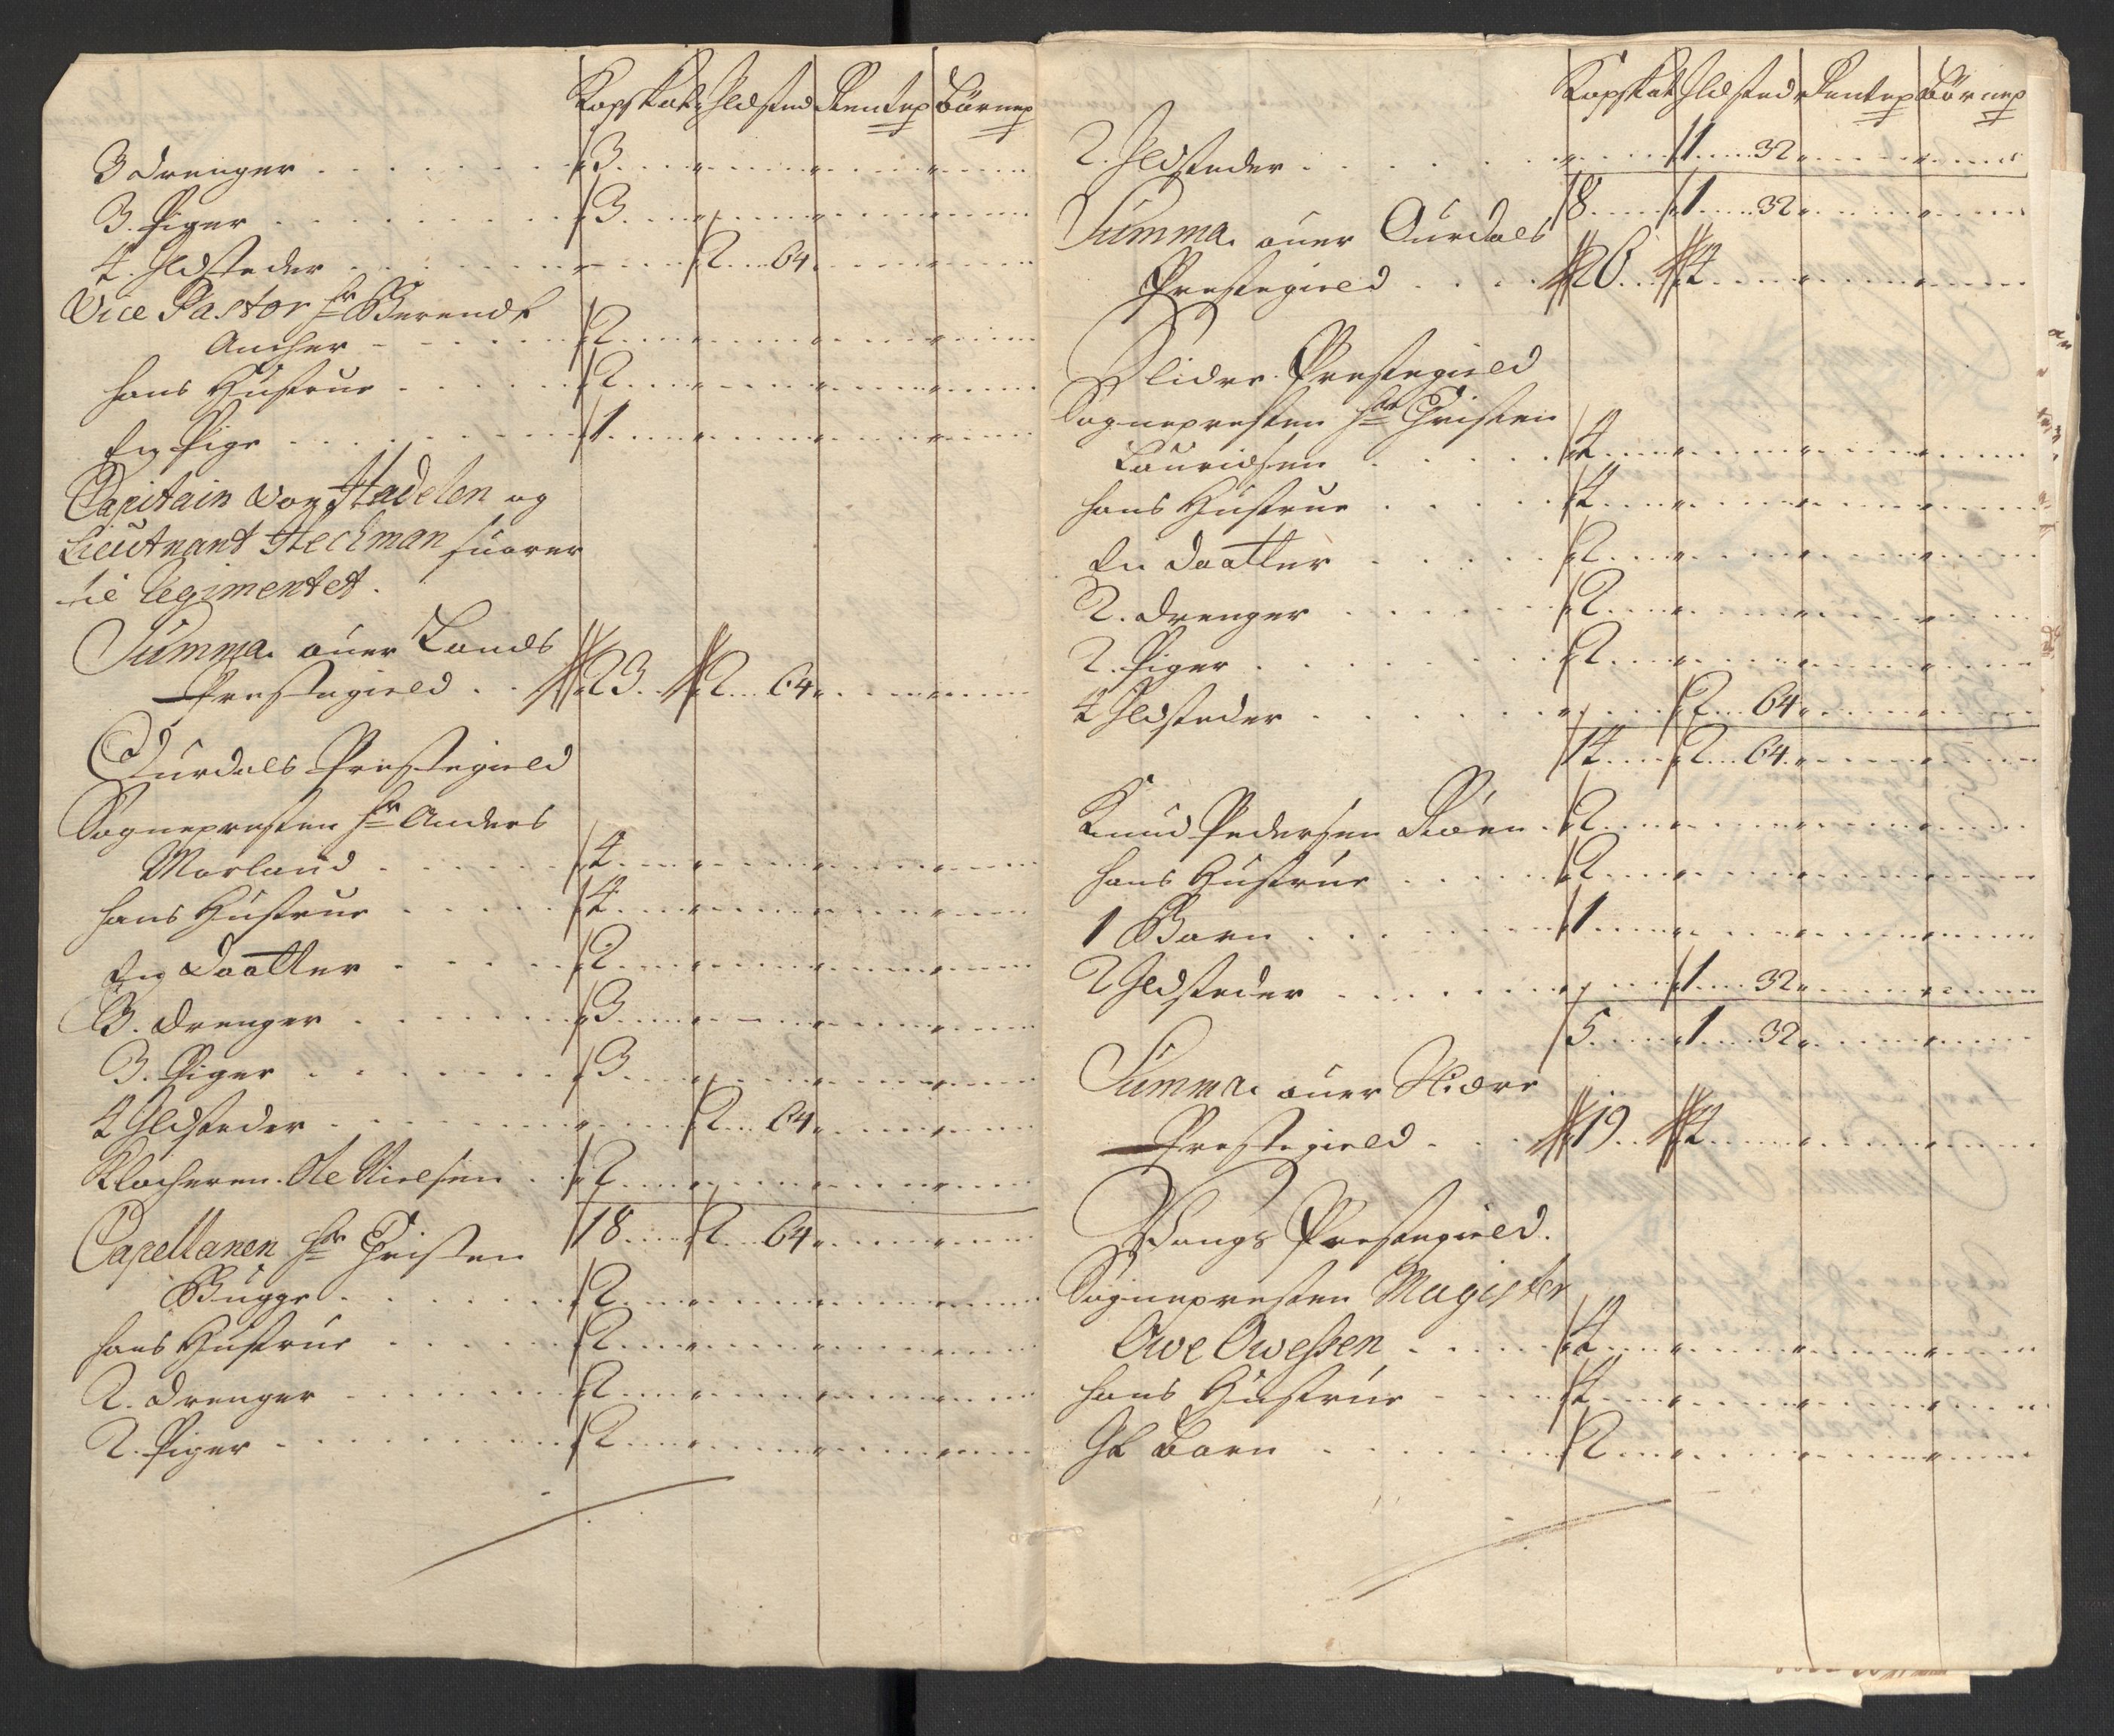 Kopskat Ildsted Rentep Börnep
3 drenger . . . 3
3. Piger . . . 3
4. Ildsteder . . . 2 64
Vice Pastor Hr Berendt
Ancher . . . 2
hans Hustrue . . . 2
En Pige . . . 1
Capitain von Stadelen og
Lieutnant Heckman suarer
til Regimentet.
Summa ouer Lands
Prestegield . . 23 2 64
Ourdals Prestegield
Sognepresten Hr Anders
Morland . . . 4
hans Hustrue . . . 4
En Daatter . . . 2
3. drenger . . . 3
3. Piger . . . 3
4 Ildsteder . . . 2 64
Klocheren Ole Nielsen . . 2
18 2 64
Capellanen Hr Christen
Bugge . . . 2
hans Hustrue . . . 2
2. drenger . . . 2
2. Piger . . . 2
Kopskat Ildsted Rentep Börnep
2. Ildsteder . . . 1 32
8 1 32
Summa ouer Ourdals
Prestegield . . . 26 4
Slidre Prestegield
Sognepresten Hr Christen
Lauridsen . . . 4
hans Hustrue . . . 4
En daatter . . . 2
2. drenger . . . 2
2. Piger . . . 2
4 Ildsteder . . . 2 64
14 2 64
Knud Pedersen Röen . 2
hans Hustrue . . . 2
1 Barn . . . 1
2 Ildsteder . . . 1 32
5 1 32
Summa ouer Slidre
Prestegield . . . 19 4
Wangs Prestegield.
Sognepresten Magister
Owe Owessen . . . 4
hans Hustrue . . . 4
It barn . . . 2